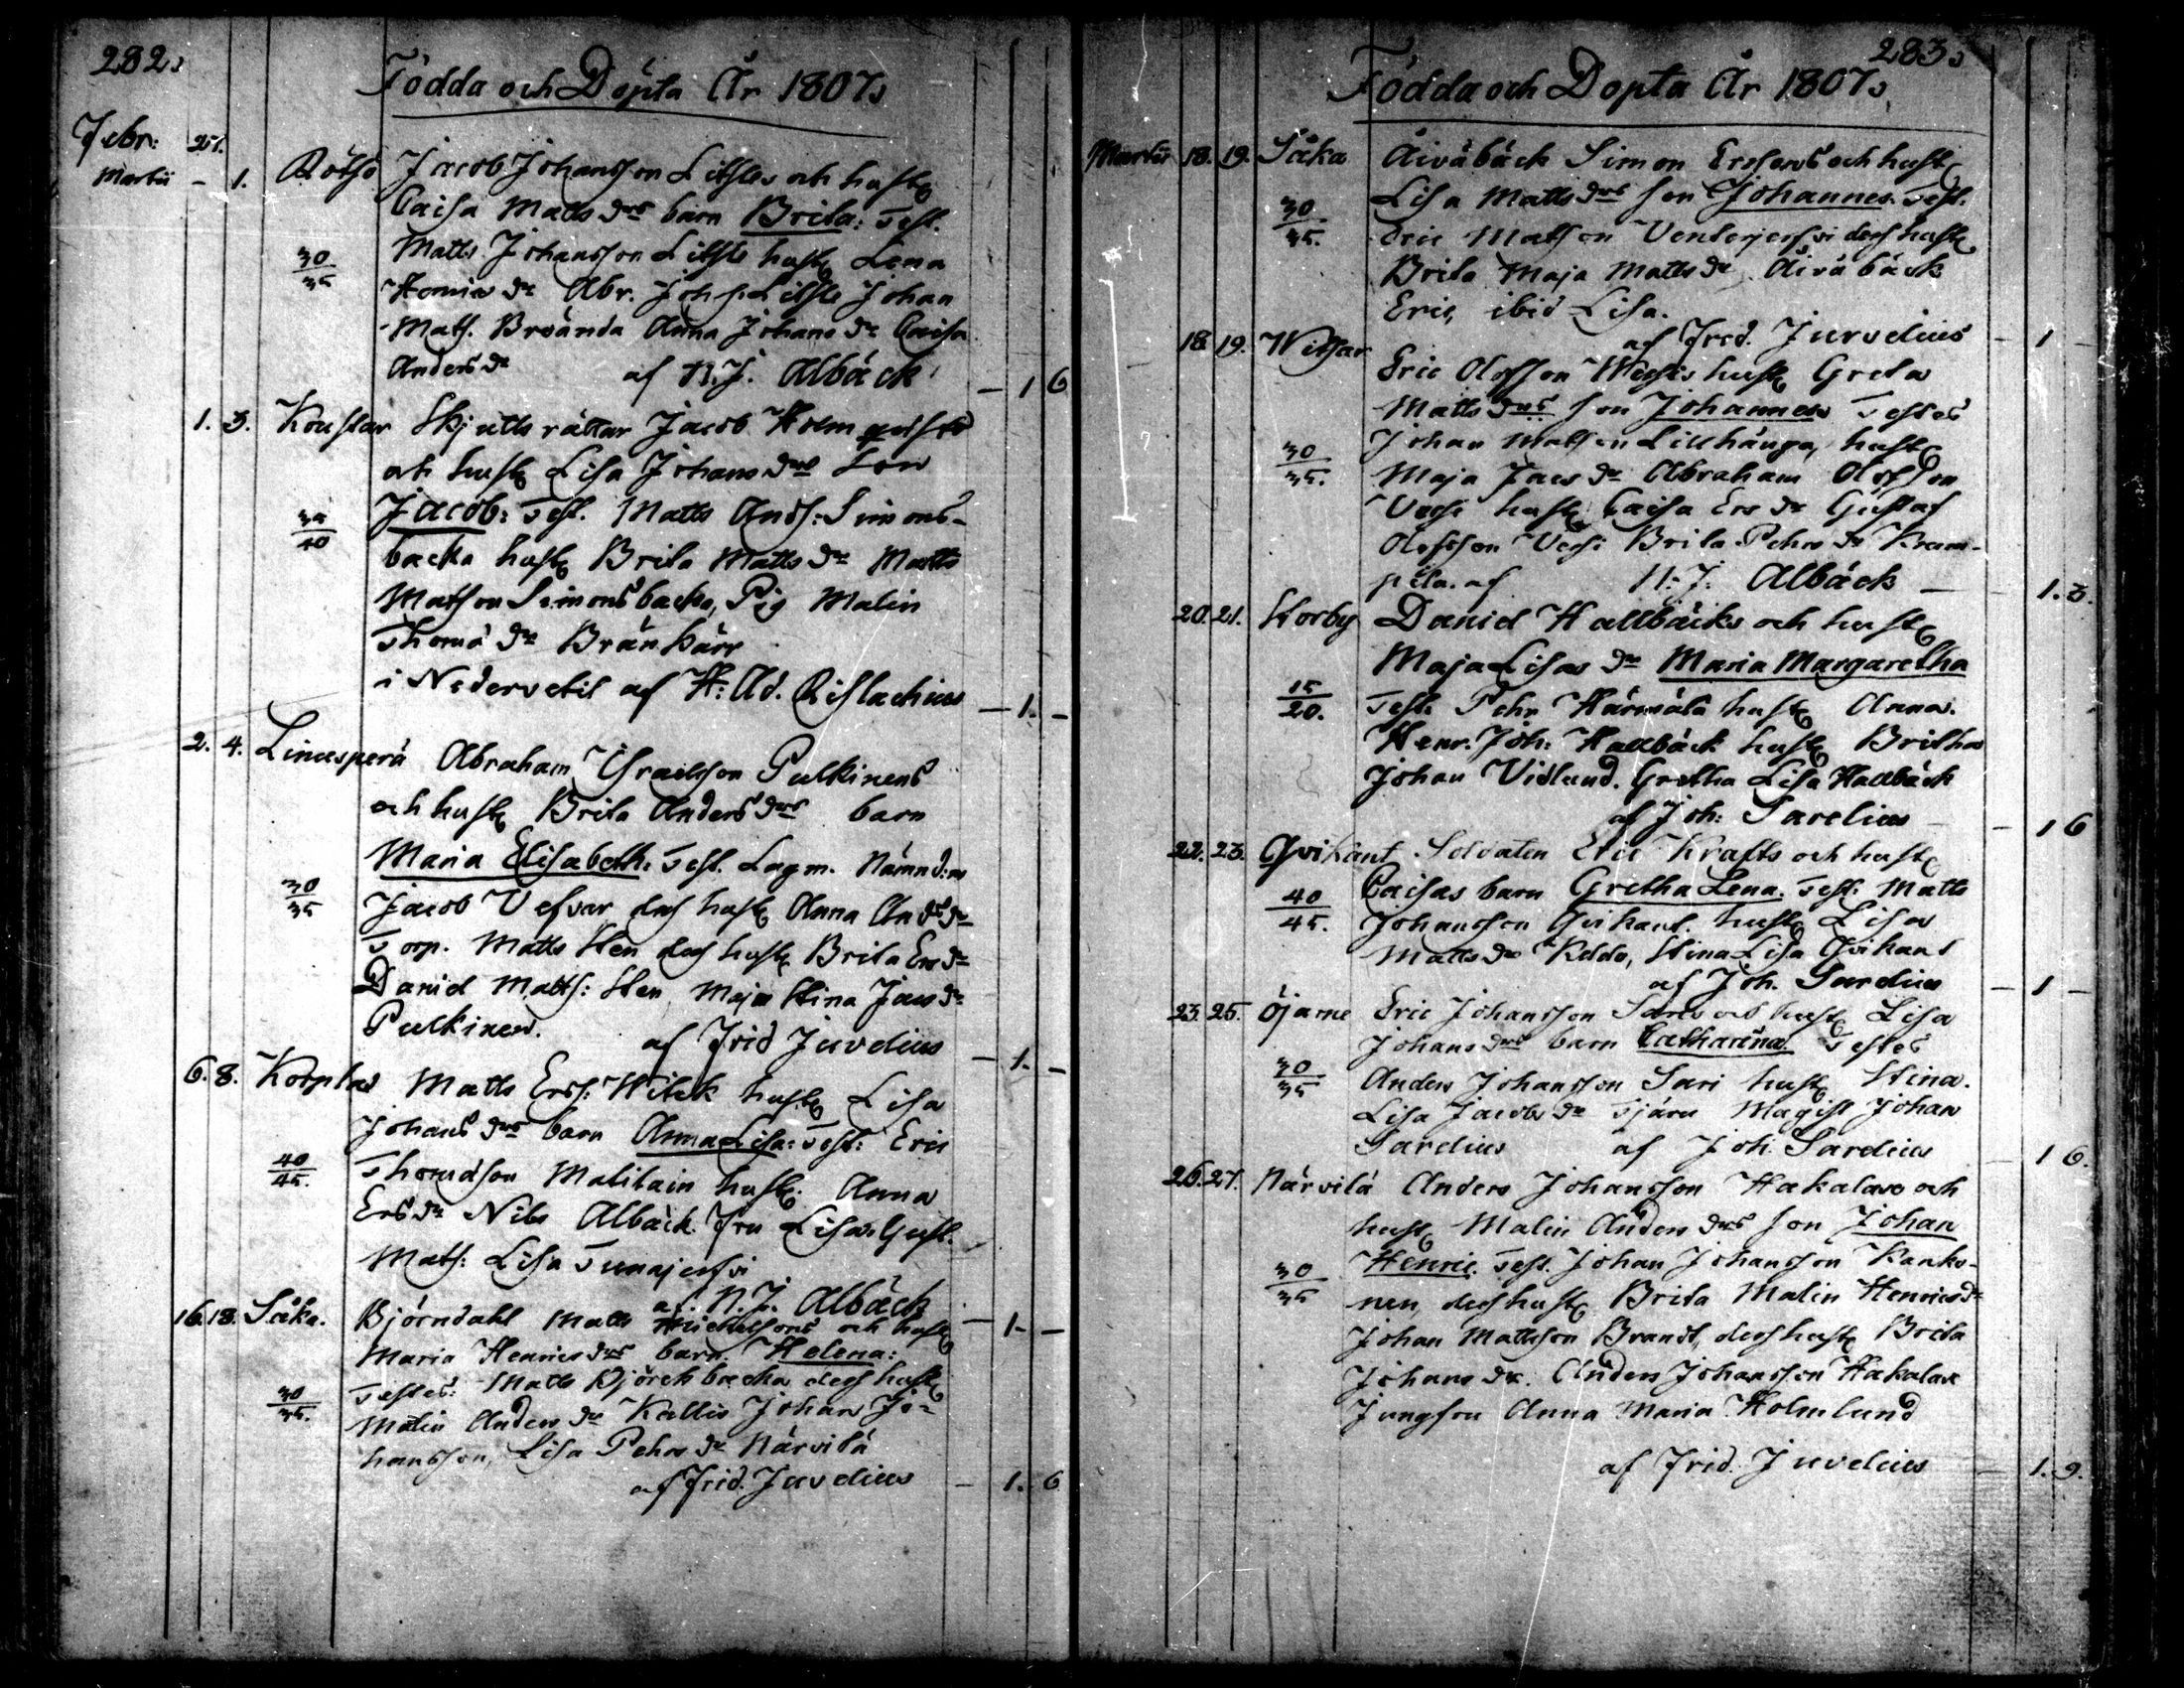 282.
Födda och Döpta År 1807.
Febr: 27.
Martii – 1. Rötsö Jacob Johansson Litsles och hust.
Caisa Matts drs barn Brita: Test.
30/35 Matts Johansson Litsle hust. Lena
dr Abr. Joh:s. Litsle Johan
Mats. Brända Anna Johans dr Caisa
Anders dr af N. J. Albäck – 1 6
1. 3. Skjuts rättar Jacob Holmquists
och hust. Lisa Johans drs Son
Jacob: Test. Matts Ands: Simons-
40 backa hust. Brita Matts dr Matts
Matson Simonsbacka, Pig Malin
Thoma dr Brännkärr
i Nedervetil af H: Ad. Rislachius – 1. –
2. 4. Linusperä Abraham Israelsson Pulkinens
och hust. Brita Anders drs barn
Maria Elisabeth. Test. Lagm. Nämndem
30/35 Jacob Vefvar des hust. Anna Ands dr
Torp. Matts Sten des hust. Brita Ers dr
Daniel Matts: Sten, Maja Stina Jacs dr
Pulkinen. af Frid Juvelius – 1. –
6. 8. Korplax Matts Ers: Witick hust. Lisa
Johans drs barn Anna Lisa: Test: Eric
40/45. Thomasson Matilain hust. Anna
Ers dr Nils Albäck. Fru Lisa. Gust.
Mats: Lisa Tunajerfvi
af. N. J. Albäck – 1. –
16. 18. Såka. Björndahl Matts Michelsons och hust.
Maria Henrics drs barn Helena:
Testes: Matts Björckbacka des hust.
30/35. Malin Anders dr Kallis Johan Jo-
hansson, Lisa Pehrs dr Närvilä
af Frid. Juvelius – 1. 6
283.
Födda och Dopta År 1807.
Martii 18. 19. Såka Åiväbäck Simon Erssons och hust.
Lisa Matts drs son Johannes. Test.
30/35. Eric Matson Ventusjerfvi des hust.
Brita Maja Matts dr Åiväbäck
Eric, ibid Lisa.
af Frid. Juvelius – 1 –
18. 19. Witsar Eric Olofsson Wechis hust. Greta
Matts drs son Johannes Testes
30/35. Johan Matson Lillhänga, hust.
Maja Jacs dr Abraham Olofsson
Vechi hust. Caisa Ers dr Gustaf
Olofsson Vechi Brita Pehrs dr
af N: J: Albäck – 1. 3.
20. 21. Storby Daniel Hallbäcks och hust.
Maja Lisas dr Maria Margaretha
15/20. Test. Pehr Härmälä hust. Anna.
Henr. Joh: Hallbäck hust. Britha
Johan Vidlund. Gretha Lisa Hallbäck
af Joh: Sarelius – 1 6
22. 23. Qvikant Soldaten Eric Krafts och hust.
40/45. Caisas barn Gretha Lena. Test: Matts
Johansson Qvikant. hust. Lisa
Matts dr Stina Lisa Qvikant
af Joh. Sarelius – 1 –
23. 25. Öjarne Eric Johansson Saris och hust. Lisa
Johans drs barn Catharina. Testes
30/35 Anders Johansson Sari hust. Stina.
Lisa Jacobs dr Magist Johan
Sarelius af Joh. Sarelius – 1 6.
26. 27. Närvilä Anders Johansson Hakalax och
hust. Malin Anders drs son Johan
30/35 Henric. Test. Johan Johansson Kanko-
nen, des hust. Brita Malin Henrics dr
Johan Mattsson Brandt, des hust. Brita
Johans dr. Anders Johansson Hakalax
Jungfru Anna Maria Holmlund
af Frid. Juvelius – 1. 9.